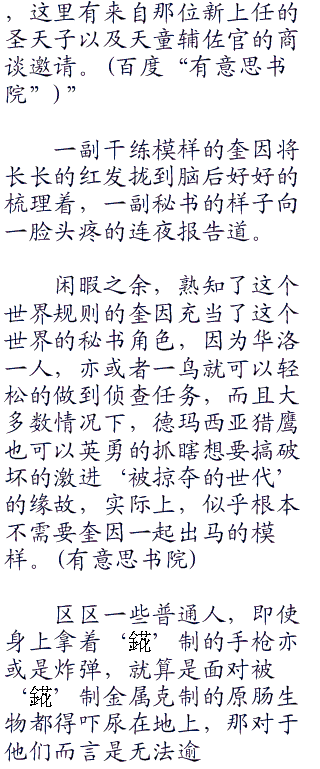 ，这里有来自那位新上任的
圣天子以及天童辅佐官的商
谈邀请。(百度“有意思书
院”)”
一副干练模样的奎因将
长长的红发拢到脑后好好的
梳理着，一副秘书的样子向
一脸头疼的连夜报告道。
闲暇之余，熟知了这个
世界规则的奎因充当了这个
世界的秘书角色，因为华洛
一人，亦或者一鸟就可以轻
松的做到侦查任务，而且大
多数情况下，德玛西亚猎鹰
也可以英勇的抓瞎想要搞破
坏的激进‘被掠夺的世代’
的缘故，实际上，似乎根本
不需要奎因一起出马的模
样。(有意思书院)
区区一些普通人，即使
身上拿着‘錵’制的手枪亦
或是炸弹，就算是面对被
‘錵’制金属克制的原肠生
物都得吓尿在地上，那对于
他们而言是无法逾